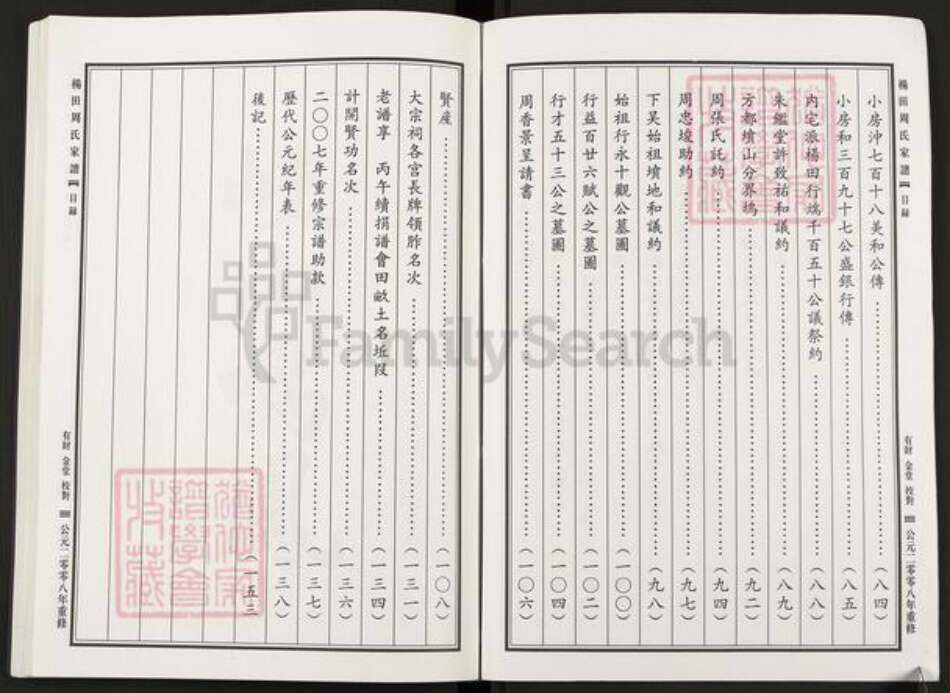 楊田周氏家譜 目錄
小房沖七百十八美和公傳 (八四)
小房和三百九十七公盛銀行傳 (八五)
內宅派楊田行端千百五十公議祭約 (八八)
朱鑑堂許致祐和議約 (八九)
方都墳山分界塢 (九二)
周張氏託約 (九四)
周忠埈助約 (九七)
下吴始祖墳地和議約 (九八)
始祖行永十觀公墓圖 (一〇〇)
行益百廿六賦公之墓圖 (一〇二)
行才五十三公之墓圖 (一〇四)
周香景呈請書 (一〇六)
有財 金堂 校對 公元二零零八年重修
賢産 (一〇八)
大宗祠各宫長牌領胙名次 (一三一)
老譜享 丙午續捐譜會田畝土名坵段 (一三四)
計開賢功名次 (一三六)
二〇〇七年重修宗譜助款 (一三七)
歷代公元紀年表 (一三八)
後記 (一五三)
楊田周氏家譜 目錄
有財 金堂 校對 公元二零零八年重修
FamilySearch